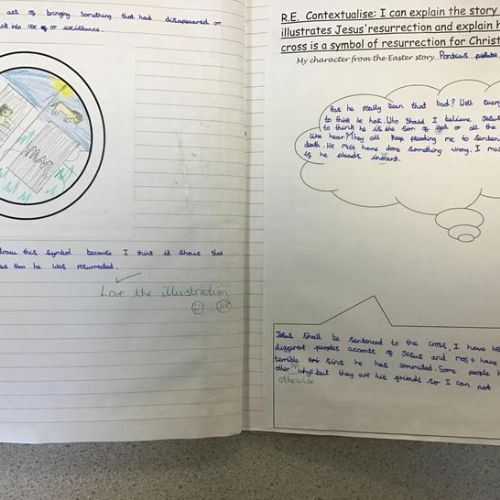 act of bringing something that had disappeared or
back into use or or existance.
draw this symbol because I think it shows that
but then he was resurrected.
Love the illustration
R.E. Contextualise: I can explain the story
illustrates Jesus' resurrection and explain h
cross is a symbol of resurrection for Christ
My character from the Easter story. Pontius pilate
Has he really been that bad? Well every
to think he has. Who should I believe Jesus
to think he is the son of god or all the
like hear? They all keep pleading me to sentan
death. He must have done something wrong. I
is he pleads
Jesus shall be sentanced to the cross, I have he
different peoples acconts of Jesus and most have
terrible sins he has commited. Some people
other why's but they are his friends so I can not
otherwise